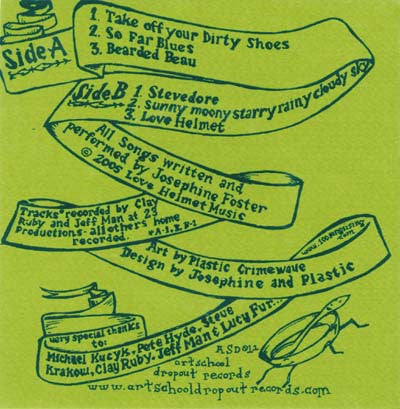 Side A
1. Take off your Dirty Shoes
2. So Far Blues
3. Bearded Beau
Side B
1. Stevedore
2. Sunny moony starry rainy cloudy sky
3. Love Helmet
All Songs written and
performed by Josephine Foster
© 2005 Love Helmet Music
Tracks* recorded by Clay
Ruby and Jeff Man at 23
Productions- all others home
recorded.
Art by Plastic Crimewave
Design by Josephine and Plastic
very special thanks
to:
Michael Kucyk, Pete Hyde, Steve
Krakow, Clay Ruby, Jeff Man & Lucy Fur...
ASD012
artschool
dropout records
www.artschooldropoutrecords.com